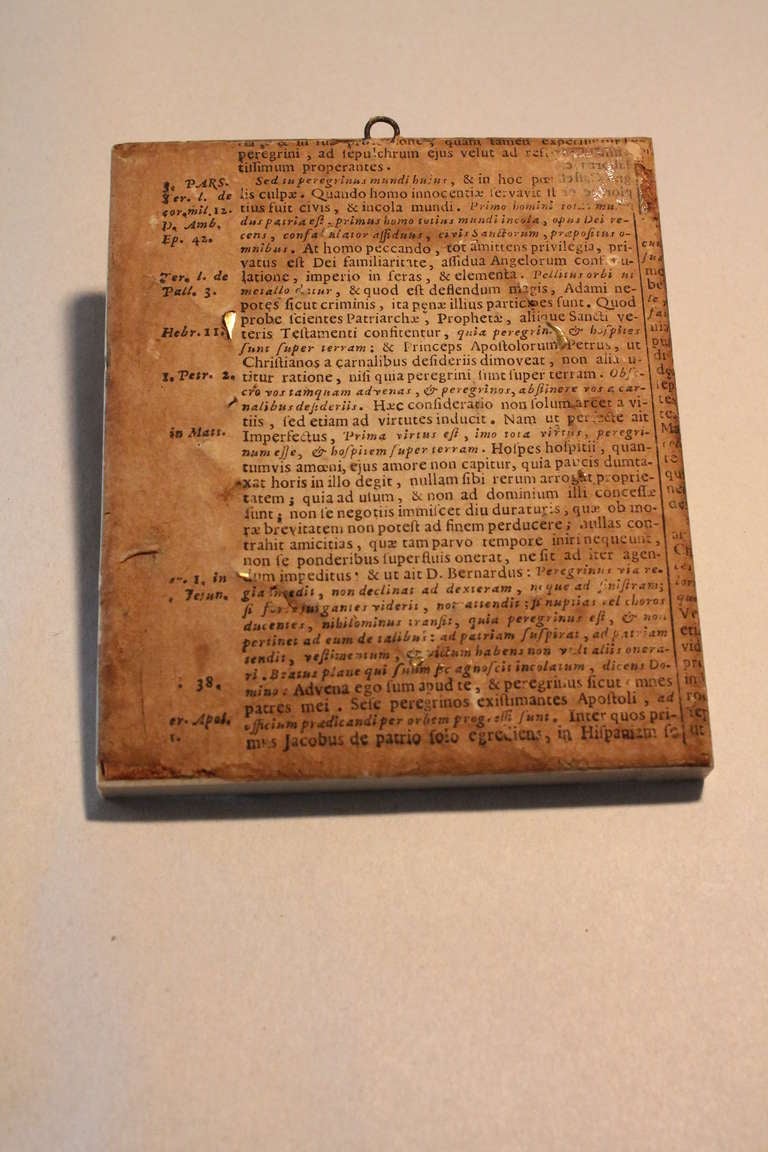 peregrini, ad sepulchrum ejus velut ad
tissimum properantes.
3. PARS.
Ter. l. de
cor. mil. 12.
D. Amb.
Ep. 42.
Ter. l. de
Pall. 3.
Hebr. 11.
1. Petr. 2.
in Matt.
1. in
Jejun.
38.
Apol.
1.
Sed tu peregrinus mundi hujus, & in hoc
lis culpæ. Quando homo innocentiæ servavit
tius fuit civis, & incola mundi. Primo homini totus mu-
dus patria est. primus homo totius mundi incola, opus Dei re-
cens, confabulator assiduus, civis Sanctorum, præpositus o-
mnibus. At homo peccando, tot amittens privilegia, pri-
vatus est Dei familiaritate, assidua Angelorum confabu-
latione, imperio in feras, & elementa. Pellitus orbi ut
metallo datur, & quod est deflendum magis, Adami ne-
potes sicut criminis, ita penæ illius participes sunt. Quod
probe scientes Patriarchæ, Prophetæ, aliique Sancti ve-
teris Testamenti confitentur, quia peregrini & hospites
sunt super terram: & Princeps Apostolorum Petrus, ut
Christianos a carnalibus desideriis dimoveat, non alia u-
titur ratione, nisi quia peregrini sunt super terram. Obse-
cro vos tamquam advenas, & peregrinos, abstinere vos a car-
nalibus desideriis. Hæc consideratio non solum arcet a vi-
tiis, sed etiam ad virtutes inducit. Nam ut perfecte ait
Imperfectus, Prima virtus est, imo tota virtus, peregri-
num esse, & hospitem super terram. Hospes hospitii, quan-
tumvis amœni, ejus amore non capitur, quia paucis dumta-
xat horis in illo degit, nullam sibi rerum arrogat proprie-
tatem; quia ad usum, & non ad dominium illi concessæ
sunt; non se negotiis immiscet diu duraturis, quæ ob mo-
ræ brevitatem non potest ad finem perducere; nullas con-
trahit amicitias, quæ tam parvo tempore iniri nequeunt,
non se ponderibus superfluis onerat, ne sit ad iter agen-
dum impeditus: & ut ait D. Bernardus: Peregrinus via re-
gia incedit, non declinat ad dexteram, neque ad sinistram;
si forte jurgantes viderit, non attendit; si nuptias vel choros
ducentes, nihilominus transit, quia peregrinus est, & non
pertinet ad eum de talibus: ad patriam suspirat, ad patriam
tendit, vestimentum, & victum habens non vult aliis onera-
ri. Beatus plane qui suum agnoscit incolatum, dicens Do-
mino: Advena ego sum apud te, & peregrinus sicut omnes
patres mei. Sese peregrinos existimantes Apostoli, ad
officium prædicandi per orbem progressi sunt. Inter quos pri-
mus Jacobus de patrio solo egrediens, in Hispaniam